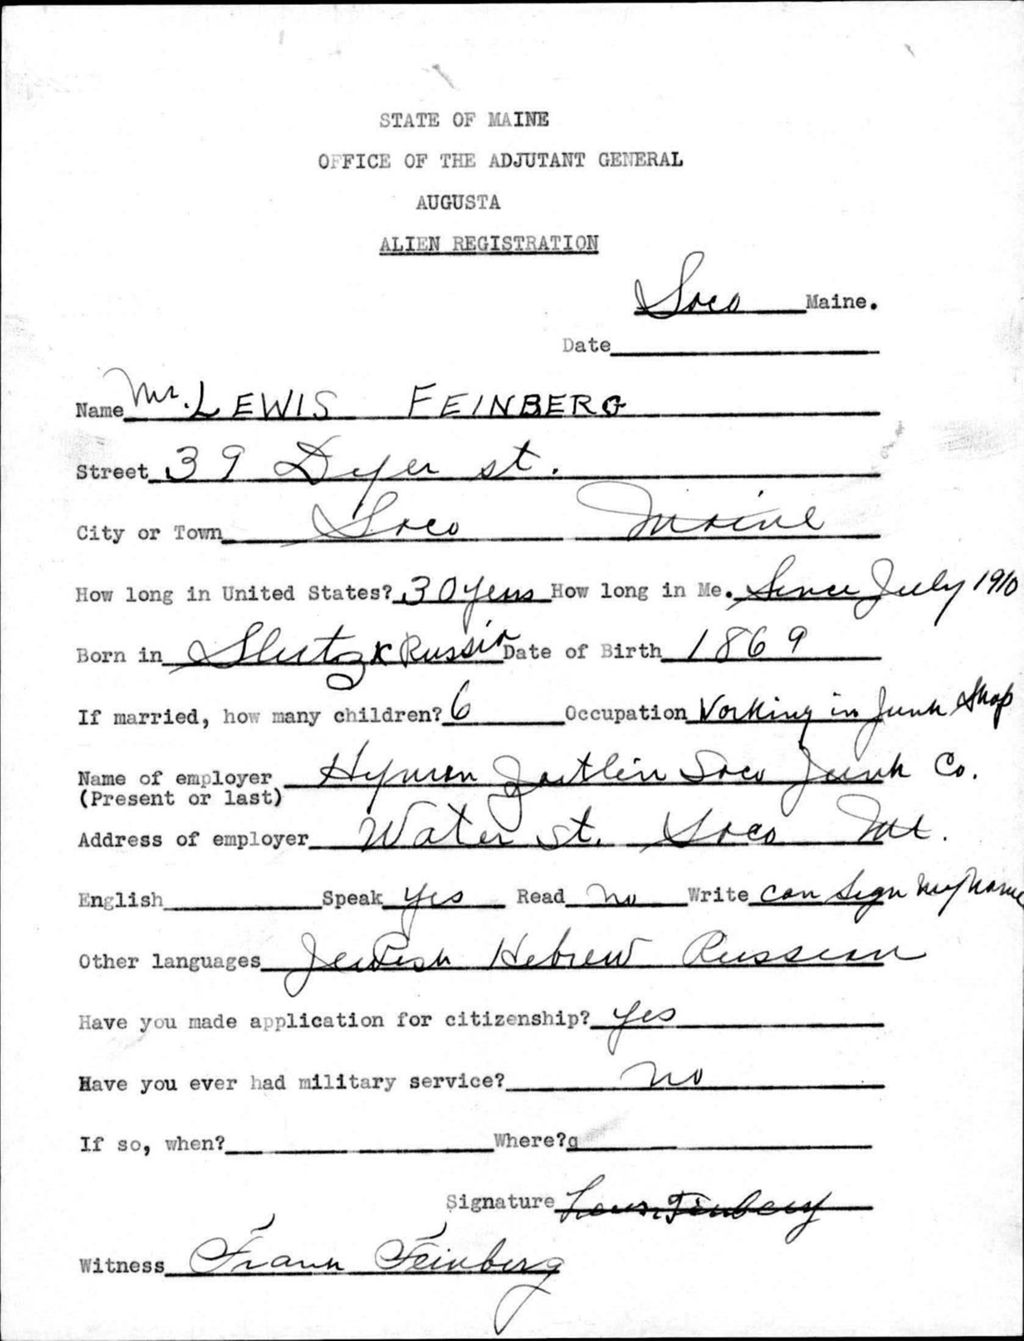 STATE OF MAINE
OFFICE OF THE ADJUTANT GENERAL
AUGUSTA
ALIEN REGISTRATION
Saco Maine.
Date
Name Mr. LEWIS FEINBERG
Street 39 Dyer st.
City or Town Saco Maine
How long in United States? 30 years How long in Me. Since July 1910
Born in Slutzk Russia Date of Birth 1869
If married, how many children? 6 Occupation Working in Junk Shop
Name of employer Hyman Saco Junk Co.
(Present or last)
Address of employer Water st. Saco Me.
English Speak yes Read no Write can sign my name
Other languages Jewish Hebrew Russian
Have you made application for citizenship? yes
Have you ever had military service? no
If so, when? Where?
Signature Louis Feinberg
Witness Frank Feinberg